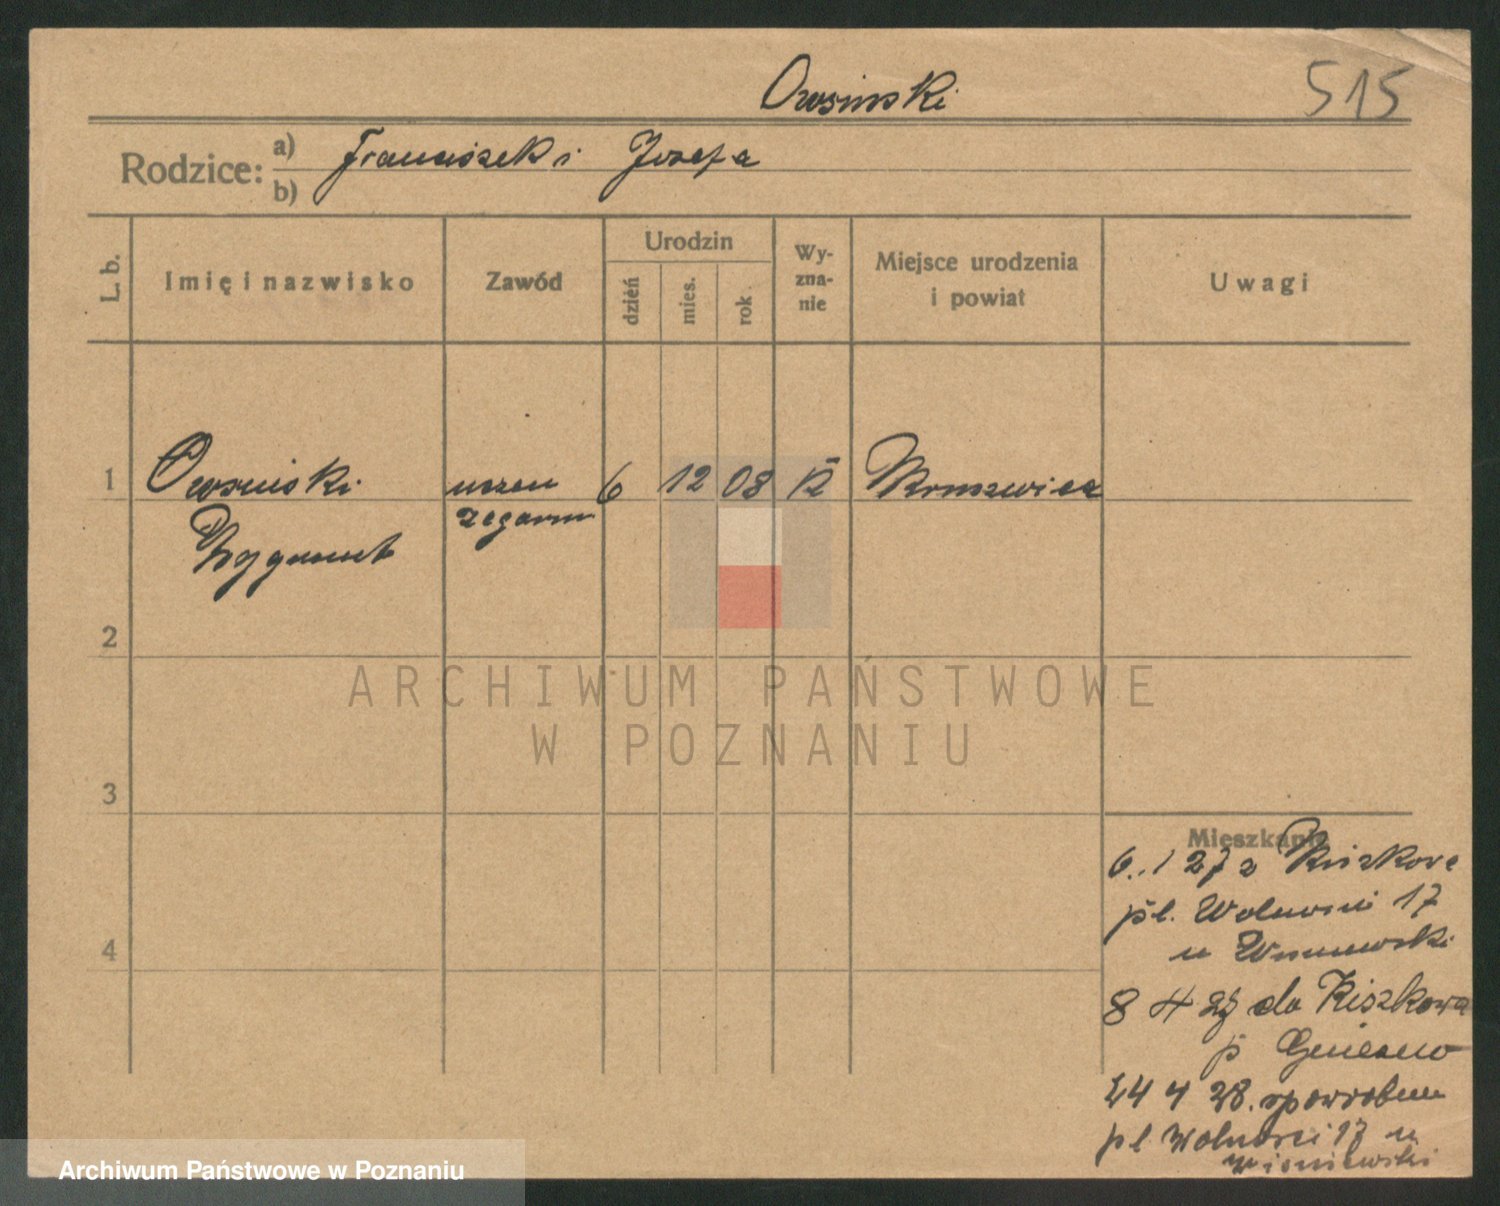 Owsinski
515
Rodzice: a) Franciszek i Jozefa
b)
L. b.
Imię i nazwisko
Zawód
Urodzin
dzień
mies.
rok
Wy-
zna-
nie
Miejsce urodzenia
i powiat
Uwagi
1
Owsinski
Zygmunt
uczen
zegarm
6
12
08
K
Kruszwica
2
3
4
Mieszkanie
6. 1 27 z Kiszkowa
pl. Wolnosci 17
u Wisniewski
8 4 27 do Kiszkowa
p Gniezno
24 4 28. spowrotem
pl Wolnosci 17 u
Wisniewski
ARCHIWUM PAŃSTWOWE
W POZNANIU
Archiwum Państwowe w Poznaniu